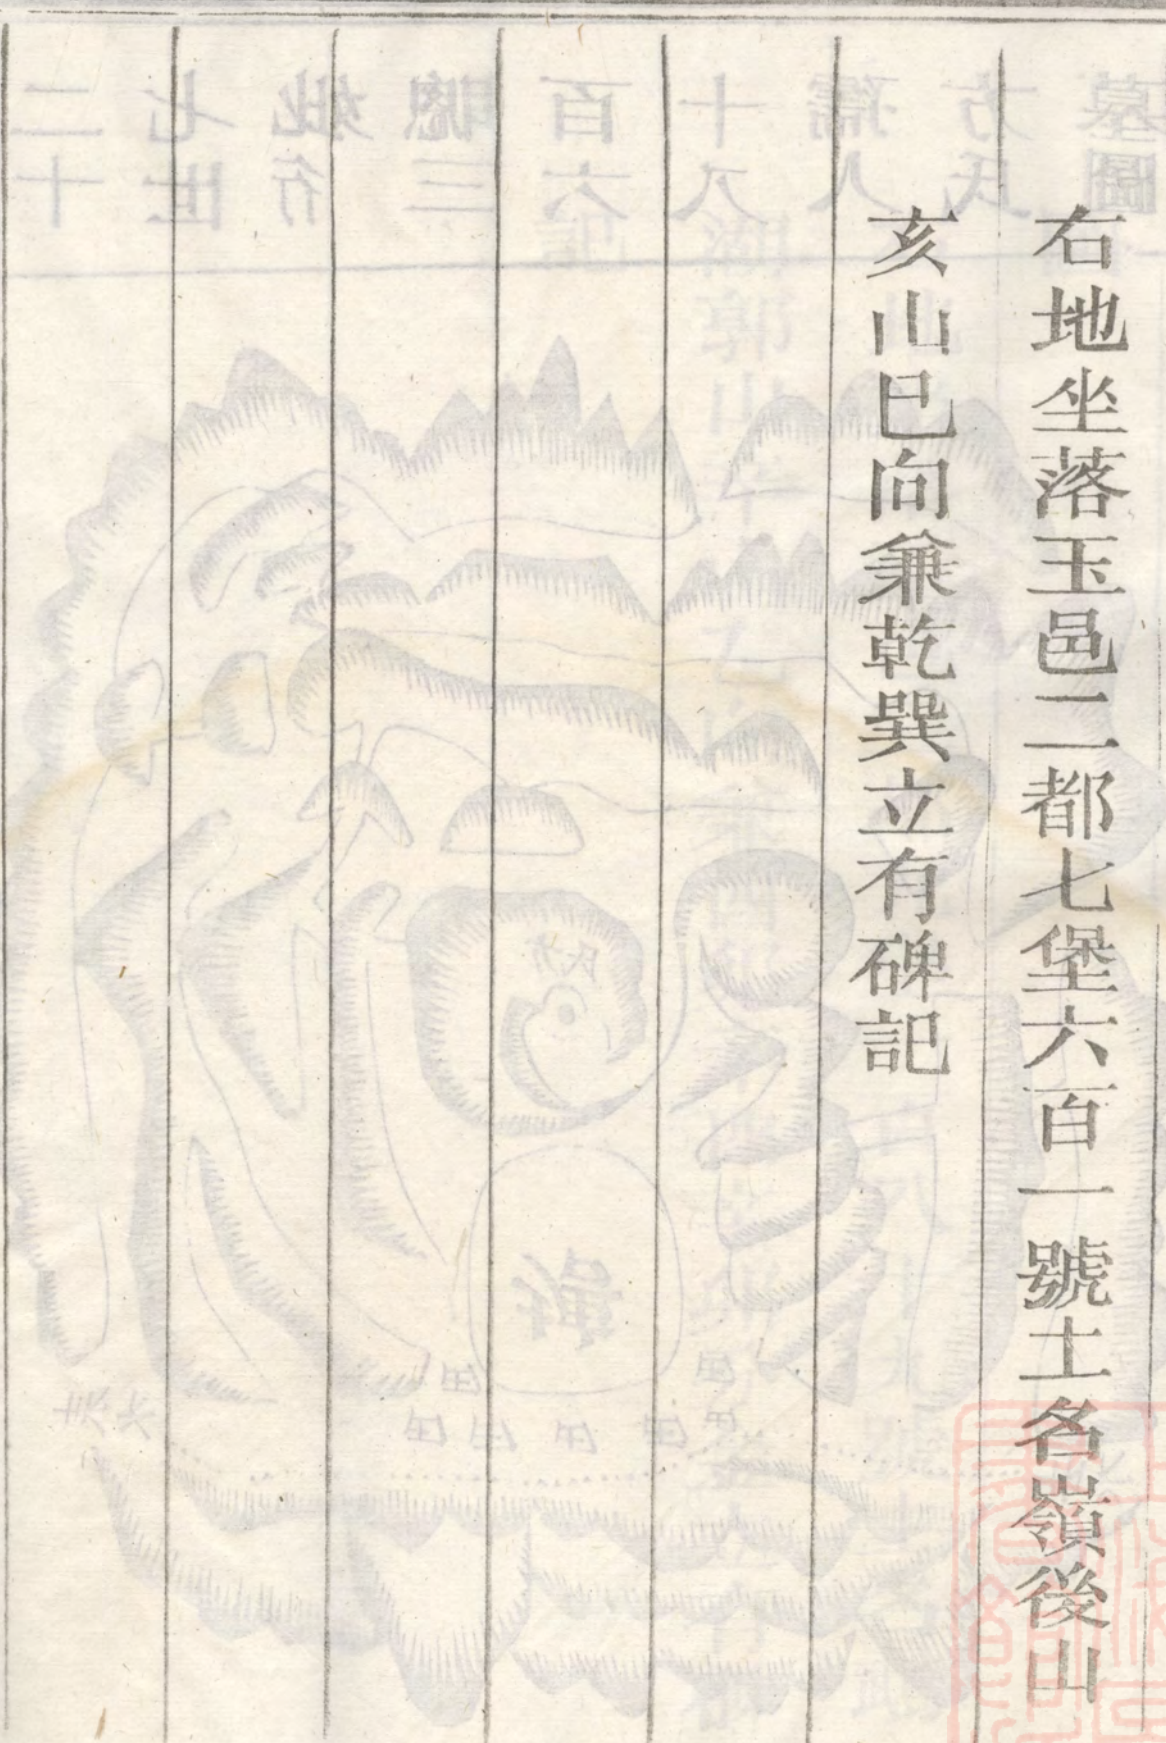 右地坐落玉邑二都七堡六百一號土名嶺後山
亥山巳向兼乾巽立有碑記